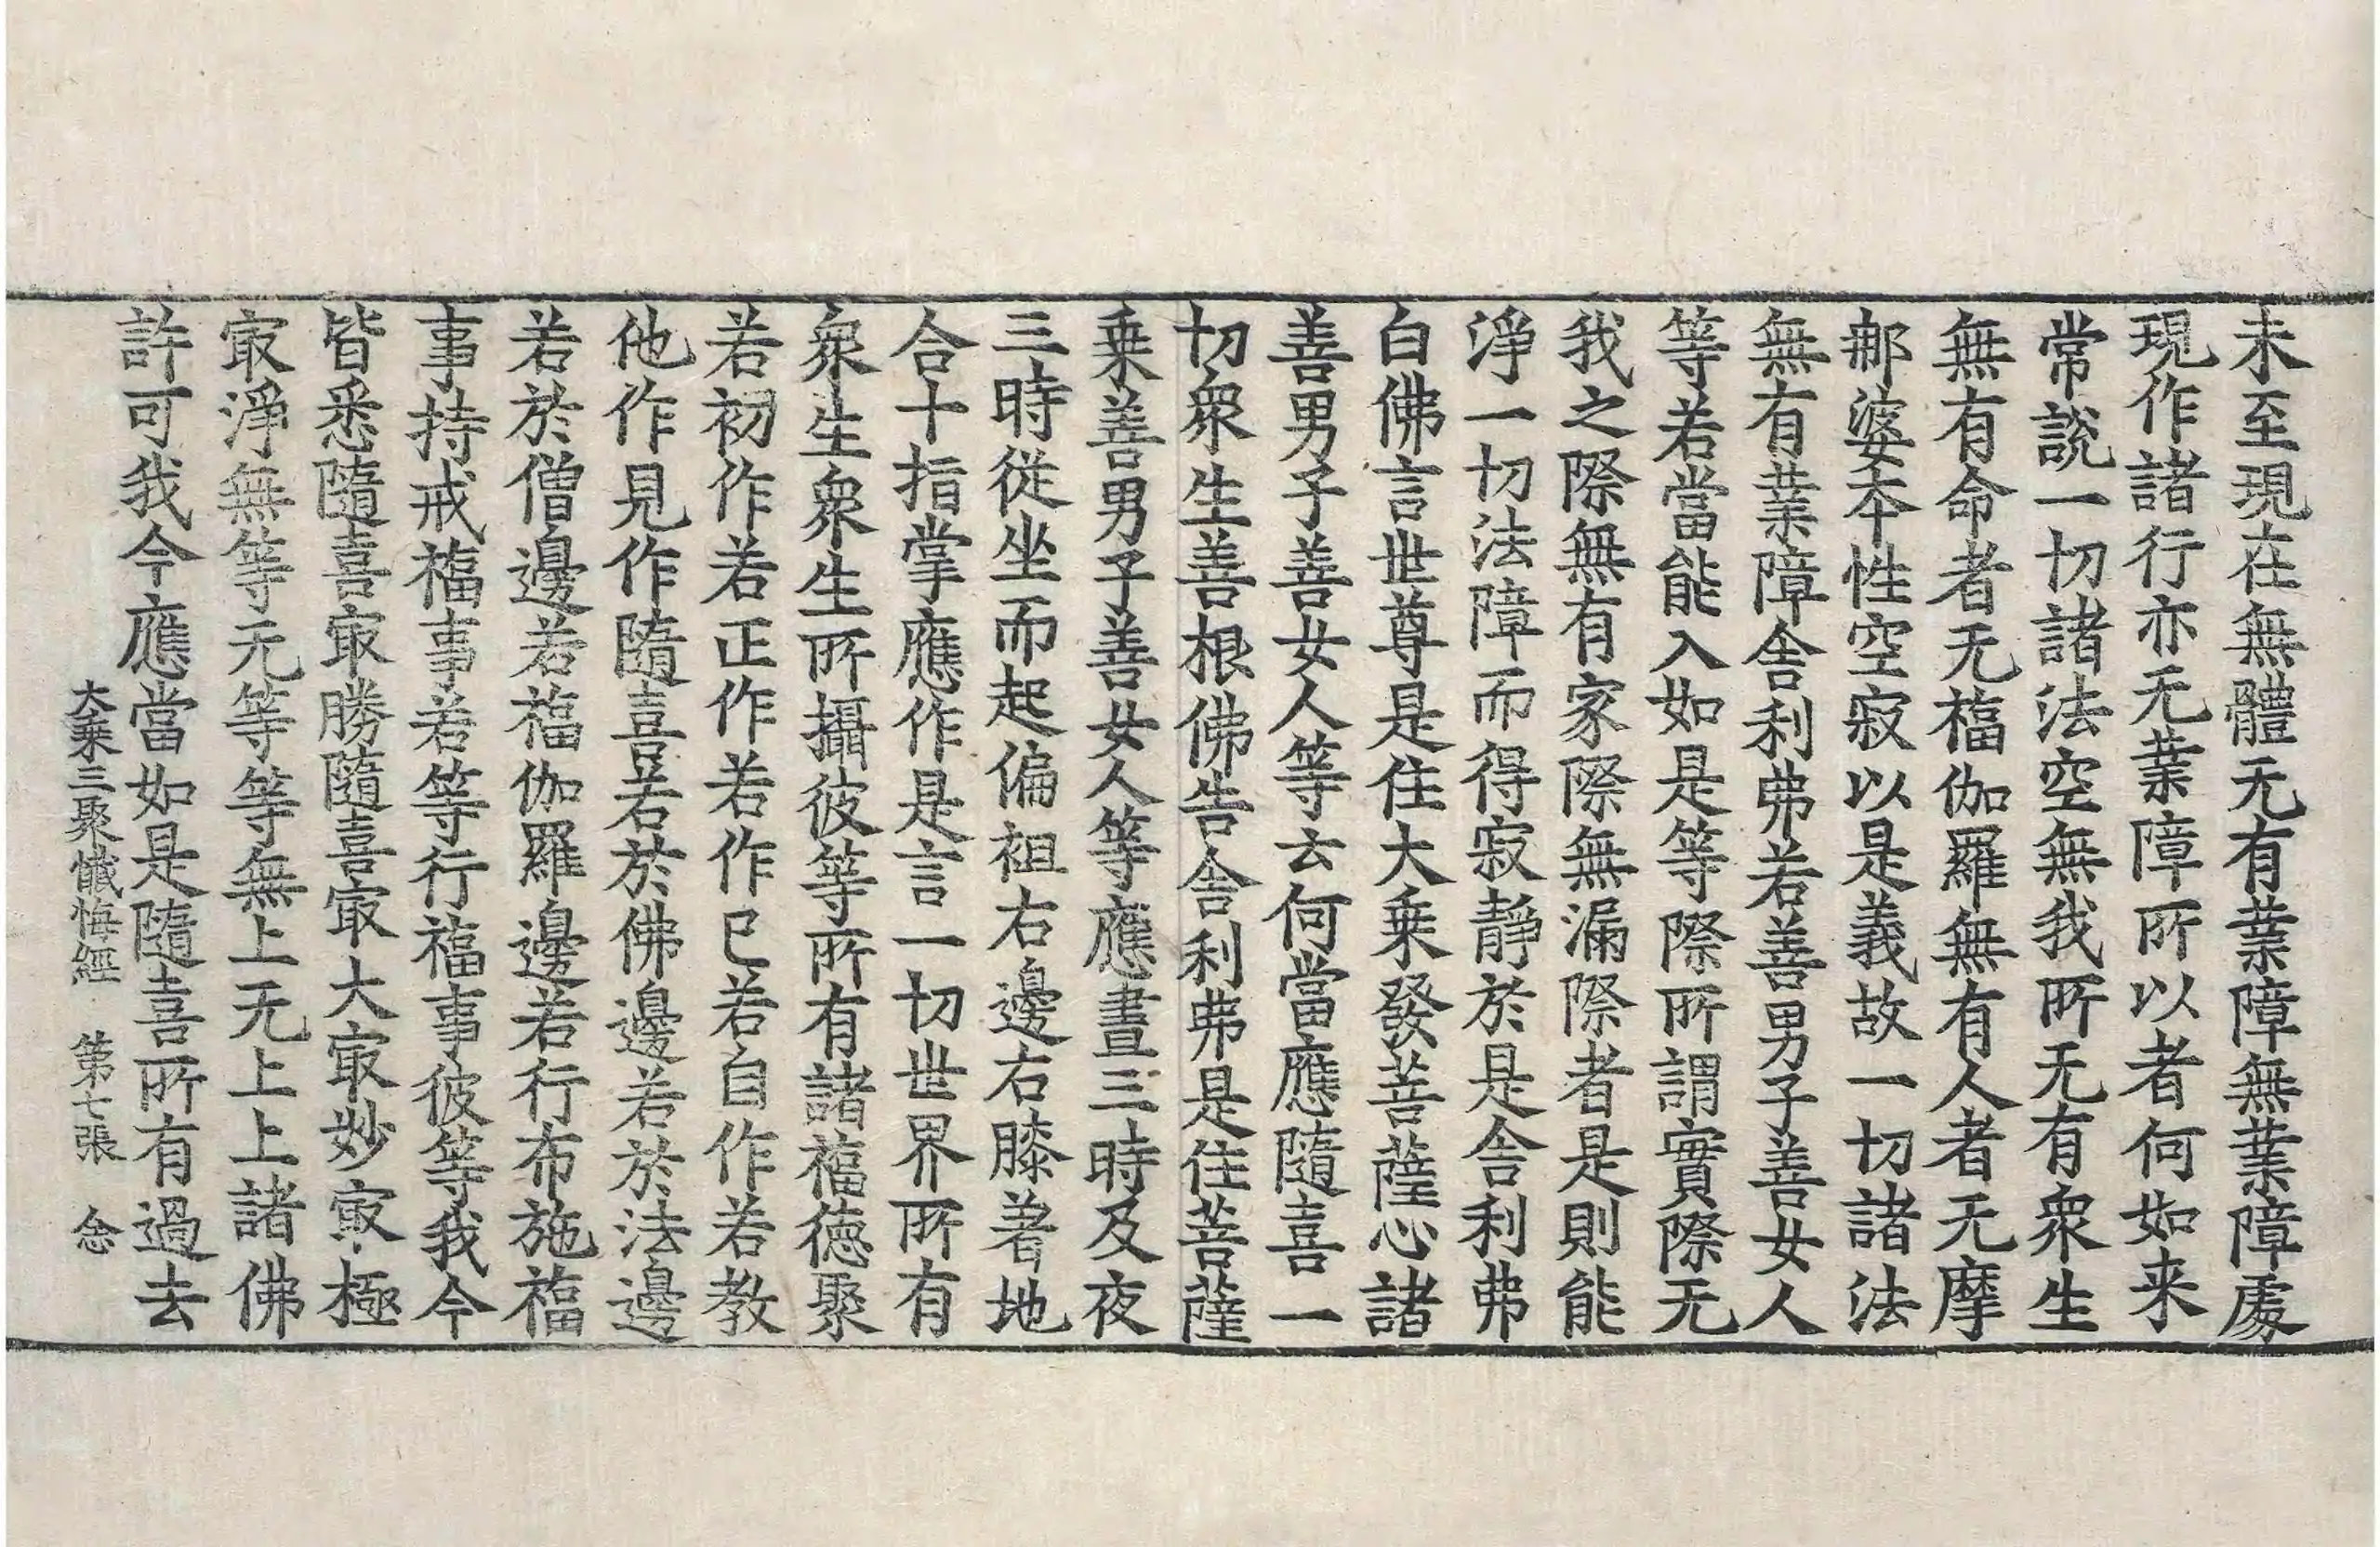 未至現在無體无有業障無業障處
現作諸行亦无業障所以者何如来
常說一切諸法空無我所无有衆生
無有命者无福伽羅無有人者无摩
郍婆夲性空寂以是義故一切諸法
無有業障舎利弗若善男子善女人
等若當能入如是等際所謂實際无
我之際無有家際無漏際者是則能
淨一切法障而得寂靜於是舎利弗
白佛言世尊是住大乗發菩薩心諸
善男子善女人等云何當應隨喜一
切衆生善根佛告舎利弗是住菩薩
乗善男子善女人等應晝三時及夜
三時從坐而起偏袒右邊右膝著地
合十指掌應作是言一切世界所有
衆生衆生所攝彼等所有諸福徳聚
若初作若正作若作已若自作若教
他作見作隨喜若於佛邊若於法邊
若於僧邊若福伽羅邊若行布施福
事持戒福事若等行福事彼等我今
皆悉隨喜㝡勝隨喜㝡大㝡妙㝡極
㝡淨無等无等等無上无上上諸佛
許可我今應當如是隨喜所有過去
大乗三聚懺悔經 第七張 念